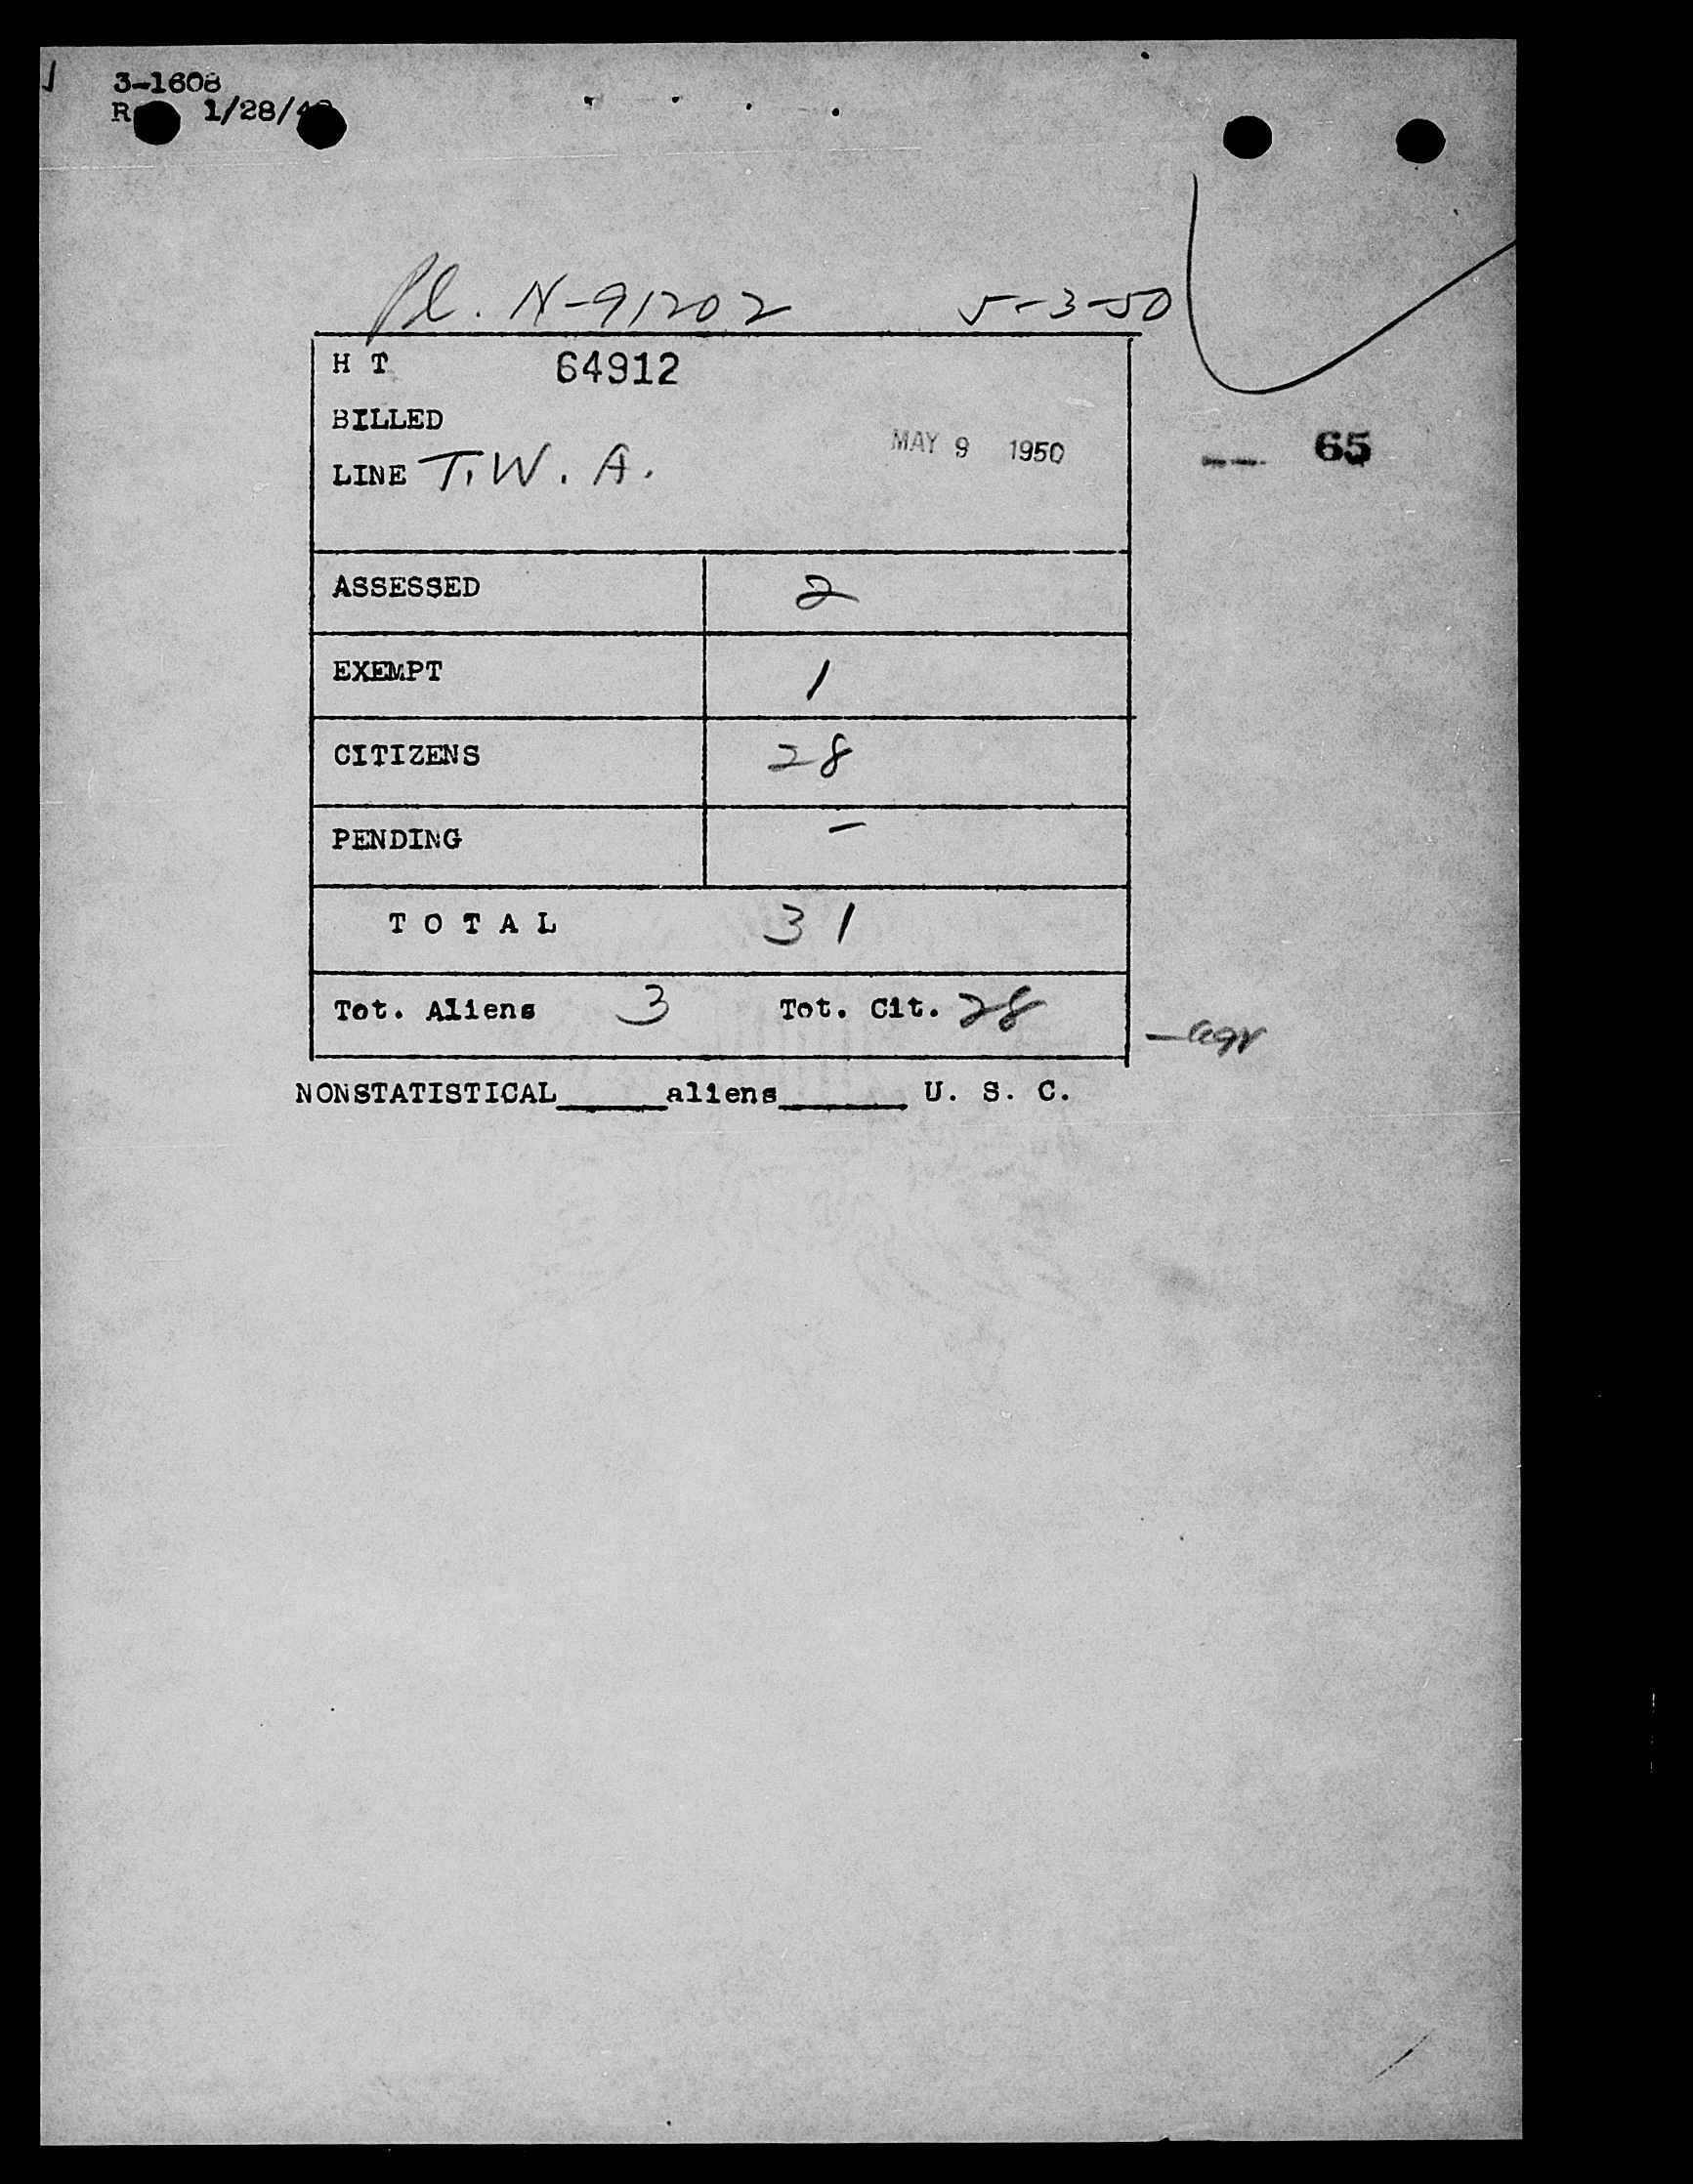 3-1608
1/28/
Pl. N-91202 5-3-50
H T 64912
BILLED
MAY 9 1950
LINE T. W. A.
65
ASSESSED 2
EXEMPT 1
CITIZENS 28
PENDING –
T O T A L 31
Tot. Aliens 3 Tot. Cit. 28
NONSTATISTICAL______aliens_______ U. S. C.